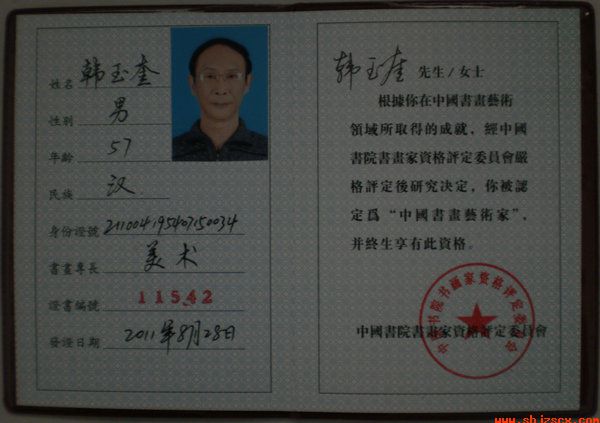 姓名 韩玉奎
性别 男
年龄 57
民族 汉
身份證號 211004195407150034
書畫專長 美术
證書編號 11542
發證日期 2011年8月28日
韩玉奎 先生/女士
根據你在中國書畫藝術
領域所取得的成就，經中國
書院書畫家資格評定委員會嚴
格評定後研究决定，你被認
定爲“中國書畫藝術家”，
并終生享有此資格。
中國書院書畫家資格評定委員會
中国书院书画家资格评定委员会
www.shizscx.com